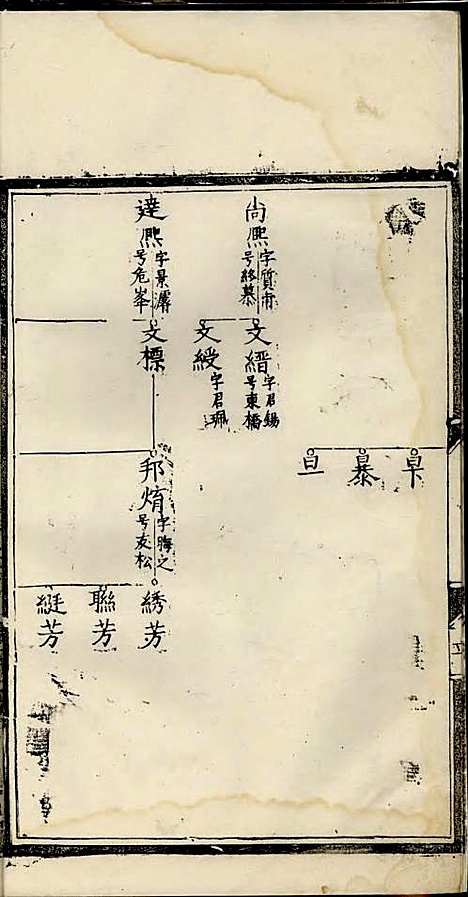 皁
暴
旦
尚熈 字質市
號終慕
文縉 字君錫
号東橋
文綬 字君珮
達熈 字景濂
号危峯
文標
邦焴 字晦之
号友松
綉芳
聯芳
綎芳